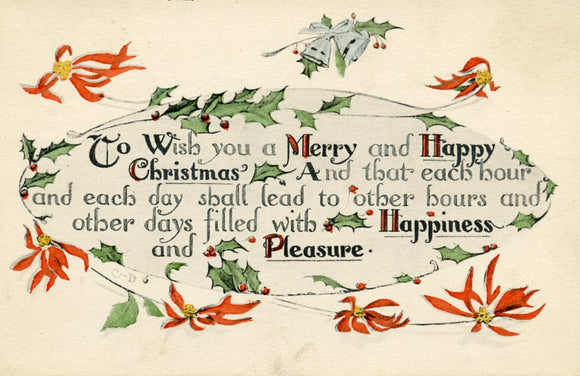 To Wish you a Merry and Happy
Christmas And that each hour
and each day shall lead to other hours and
other days filled with Happiness
and Pleasure.
C-D